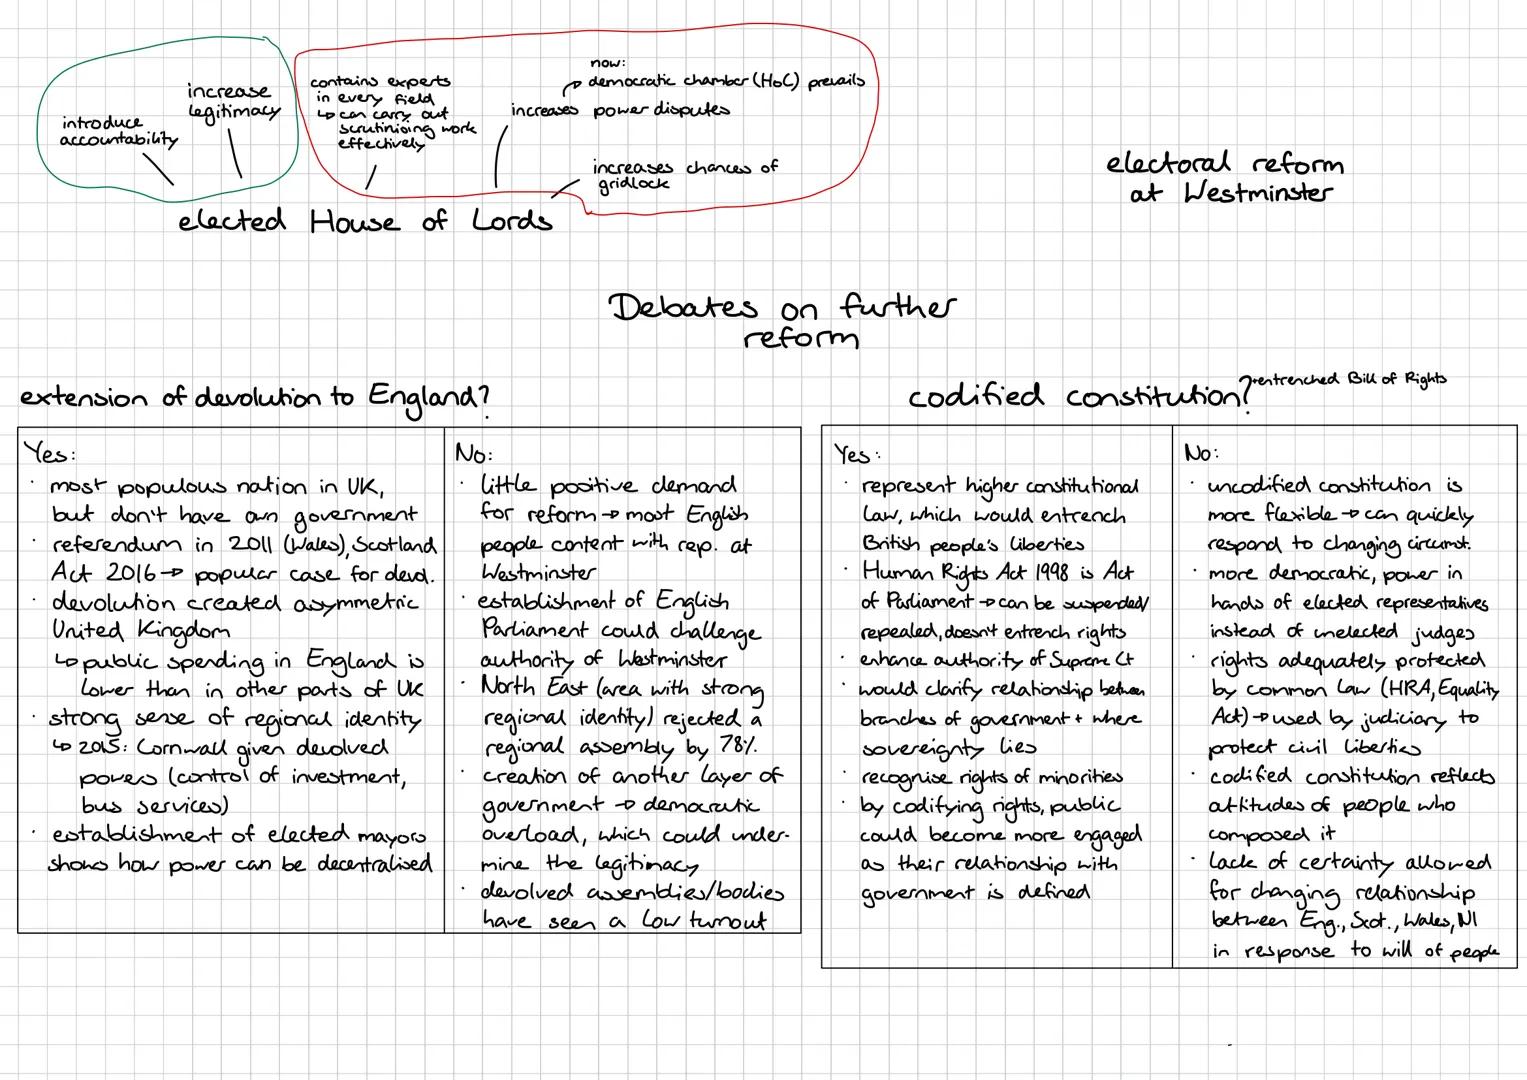 introduce
accountability
increase
legitimacy
contains experts
in every field
↳ can carry out
scrutinising work
effectively
now:
→ democratic chamber (HoC) prevails
increases power disputes
increases chances of
gridlock
elected House of Lords
electoral reform
at Westminster
Debates on further
reform
extension of devolution to England?
Yes:
· most populous nation in UK,
but don't have own government
· referendum in 2011 (Wales), Scotland
Act 2016 → popular case for devo.
· devolution created asymmetric
United Kingdom
↳ public spending in England is
lower than in other parts of UK
· strong sense of regional identity
↳ 2015: Cornwall given devolved
powers (control of investment,
bus services)
· establishment of elected mayors
shows how power can be decentralised
No:
· little positive demand
for reform → most English
people content with rep. at
Westminster
· establishment of English
Parliament could challenge
authority of Westminster
· North East (area with strong
regional identity) rejected a
regional assembly by 78%.
· creation of another layer of
government → democratic
overload, which could under-
mine the legitimacy
· devolved assemblies/bodies
have seen a low turnout
codified constitution? + entrenched Bill of Rights
Yes:
· represent higher constitutional
law, which would entrench
British people's liberties
· Human Rights Act 1998 is Act
of Parliament → can be suspended/
repealed, doesn't entrench rights
· enhance authority of Supreme Ct
· would clarify relationship between
branches of government + where
sovereignty lies
· recognise rights of minorities
· by codifying rights, public
could become more engaged
as their relationship with
government is defined
No:
· uncodified constitution is
more flexible → can quickly
respond to changing circumst.
· more democratic, power in
hands of elected representatives
instead of unelected judges
· rights adequately protected
by common law (HRA, Equality
Act) → used by judiciary to
protect civil liberties
· codified constitution reflects
attitudes of people who
composed it
· lack of certainty allowed
for changing relationship
between Eng., Scot., Wales, NI
in response to will of people